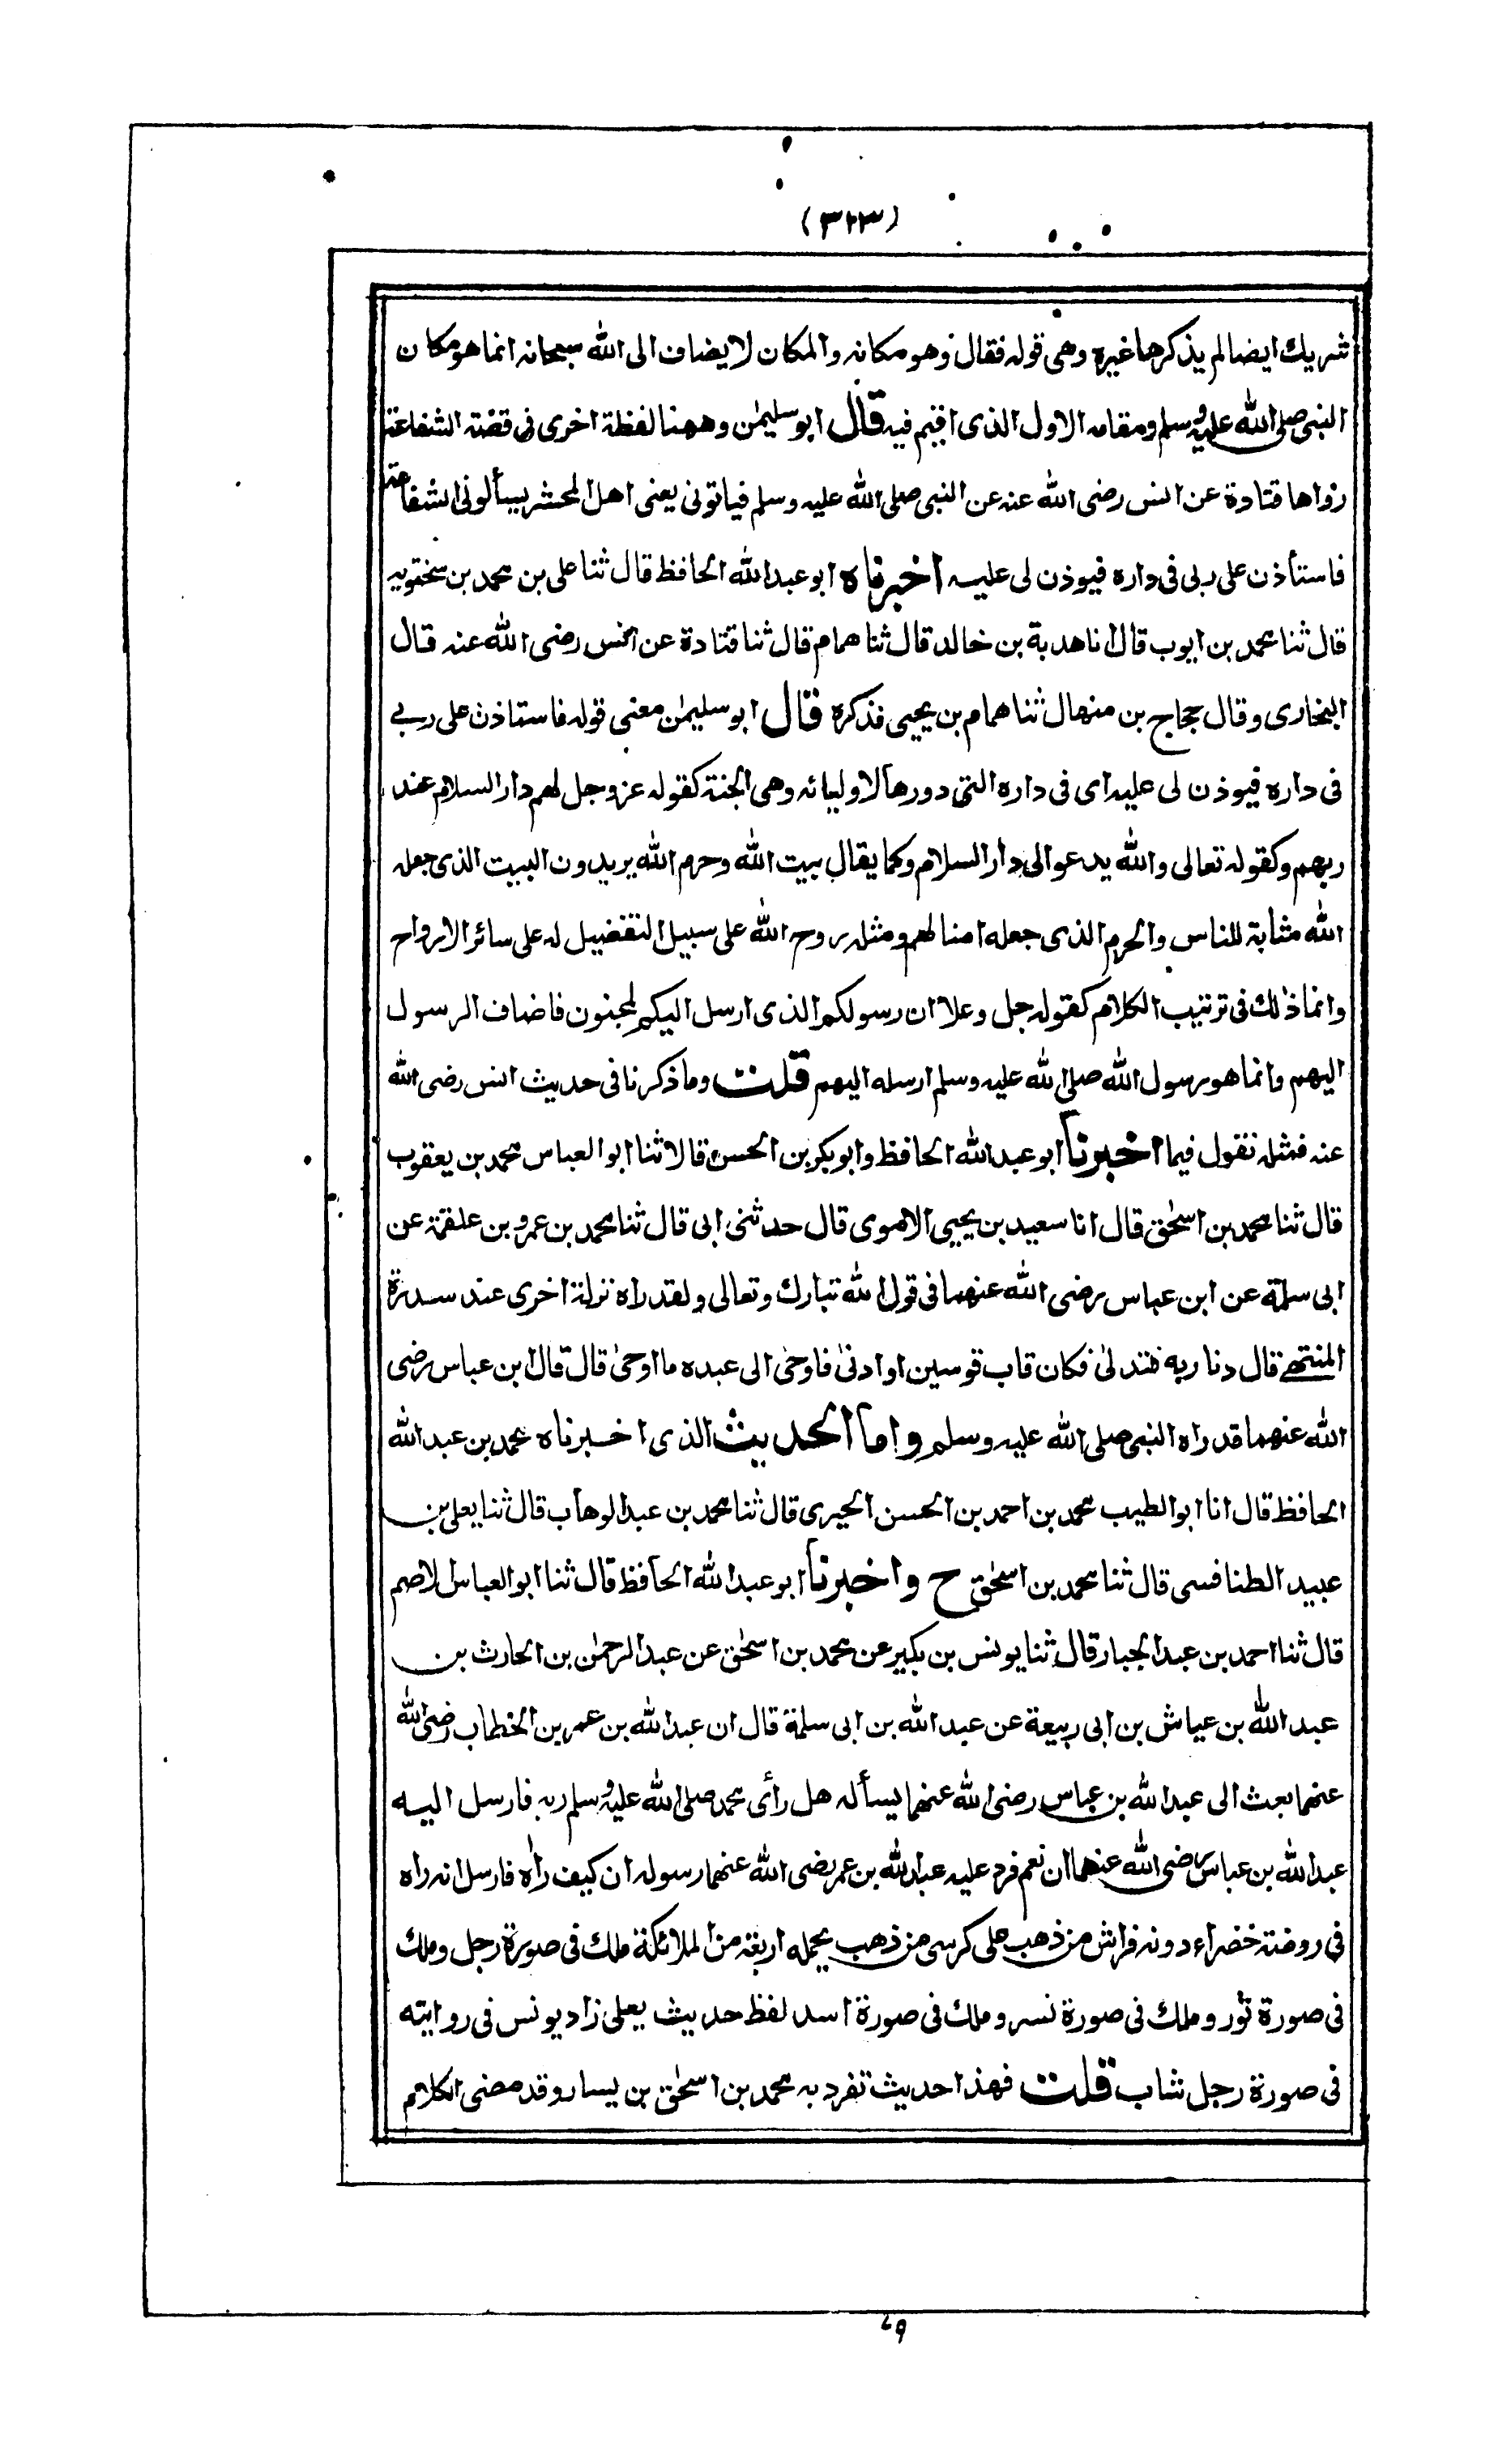 (٣١٣)
شريك ايضا لم يذكرها غيره وهى قوله فقال وهو مكانه والمكان لا يضاف الى الله سبحانه انما هو مكان
النبى صلى الله عليه وسلم ومقامه الاول الذى اقيم فيه قال ابو سليمٰن وههنا لفظة اخرى فى قصة الشفاعة
رواها قتادة عن انس رضى الله عنه عن النبى صلى الله عليه وسلم فياتونى يعنى اهل المحشر يسألونى الشفاعة
فاستأذن على ربى فى داره فيوذن لى عليه اخبرناه ابو عبد الله الحافظ قال ثنا على بن محمد بن سختويه
قال ثنا محمد بن ايوب قال انا هدبة بن خالد قال ثنا همام قال ثنا قتادة عن انس رضى الله عنه قال
البخارى وقال حجاج بن منهال ثنا همام بن يحيى فذكره قال ابو سليمٰن معنى قوله فاستاذن على ربے
فى داره فيوذن لى عليه اى فى داره التى دورها لاوليائه وهى الجنة كقوله عز وجل لهم دار السلام عند
ربهم وكقوله تعالى والله يدعوا الى دار السلام وكما يقال بيت الله وحرم الله يريدون البيت الذى جعله
الله مثابة للناس والحرم الذى جعله امنا لهم ومثله روح الله على سبيل التفضيل له على سائر الارواح
وانما ذلك فى ترتيب الكلام كقوله جل وعلا ان رسولكم الذى ارسل اليكم لمجنون فاضاف الرسول
اليهم وانما هو رسول الله صلى الله عليه وسلم ارسله اليهم قلت وما ذكرنا فى حديث انس رضى الله
عنه فمثله نقول فيما اخبرنا ابو عبد الله الحافظ وابو بكر بن الحسن قالا ثنا ابو العباس محمد بن يعقوب
قال ثنا محمد بن اسحٰق قال انا سعيد بن يحيى الاموى قال حدثنى ابى قال ثنا محمد بن عمرو بن علقمة عن
ابى سلمة عن ابن عباس رضى الله عنهما فى قول الله تبارك وتعالى ولقد راه نزلة اخرى عند سدرة
المنتهے قال دنا ربه فتدلىٰ فكان قاب قوسين او ادنىٰ فاوحىٰ الى عبده ما اوحىٰ قال قال ابن عباس رضى
الله عنهما قد راه النبى صلى الله عليه وسلم واما الحديث الذى اخبرناه محمد بن عبد الله
الحافظ قال انا ابو الطيب محمد بن احمد بن الحسن الحيرى قال ثنا محمد بن عبد الوهاب قال ثنا يعلى بن
عبيد الطنافسى قال ثنا محمد بن اسحٰق ح واخبرنا ابو عبد الله الحافظ قال ثنا ابو العباس لاصم
قال ثنا احمد بن عبد الجبار قال ثنا يونس بن بكير عن محمد بن اسحٰق عن عبد الرحمٰن بن الحارث بن
عبد الله بن عياش بن ابى ربيعة عن عبد الله بن ابى سلمة قال ان عبد الله بن عمر بن الخطاب رضى الله
عنهما بعث الى عبد الله بن عباس رضى الله عنهما يسأله هل رأى محمد صلى الله عليه وسلم ربه فارسل اليه
عبد الله بن عباس رضى الله عنهما ان نعم فرد عليه عبد الله بن عمر رضى الله عنهما رسوله ان كيف راٰه فارسل انه راه
فى روضة خضراء دونه فراش من ذهب على كرسى من ذهب يحمله اربعة من الملائكة ملك فى صورة رجل وملك
فى صورة ثور وملك فى صورة نسر وملك فى صورة اسد لفظ حديث يعلى زاد يونس فى روايته
فى صورة رجل شاب قلت فهذا حديث تفرد به محمد بن اسحٰق بن يسار وقد مضى الكلام
٧٩